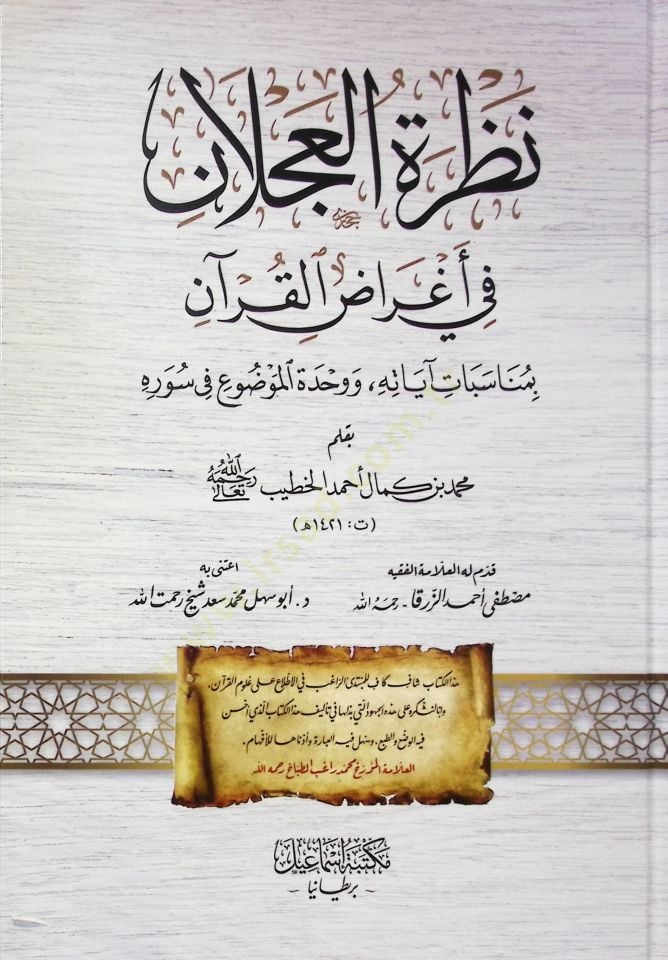 نَظْرَةُ العَجْلَانِ
فِي أَغْرَاضِ القُرْآنِ
بِمُنَاسَبَاتِ آيَاتِهِ، وَوَحْدَةِ المَوْضُوعِ فِي سُوَرِهِ
بقلم
محمد بن كمال أحمد الخطيب رَحِمَهُ اللهُ تَعَالَى
(ت: ١٤٢١ هـ)
قدّم له العلامة الفقيه
مصطفى أحمد الزّرقا - رحمهُ الله
اعتنى به
د. أبو سهل محمد سعد شيخ رحمت الله
هذا الكتاب شافٍ كافٍ للمبتدئ الراغب في الاطلاع على علوم القرآن،
وإنا لنشكره على هذه الجهود التي بذلها في تأليف هذا الكتاب الذي أحسن
فيه الوضع والطبع، وسهل فيه العبارة وأدناها للأفهام.
العلامة المؤرخ محمد راغب الطباخ رحمه الله
مكتبة إسماعيل
- بريطانيا -